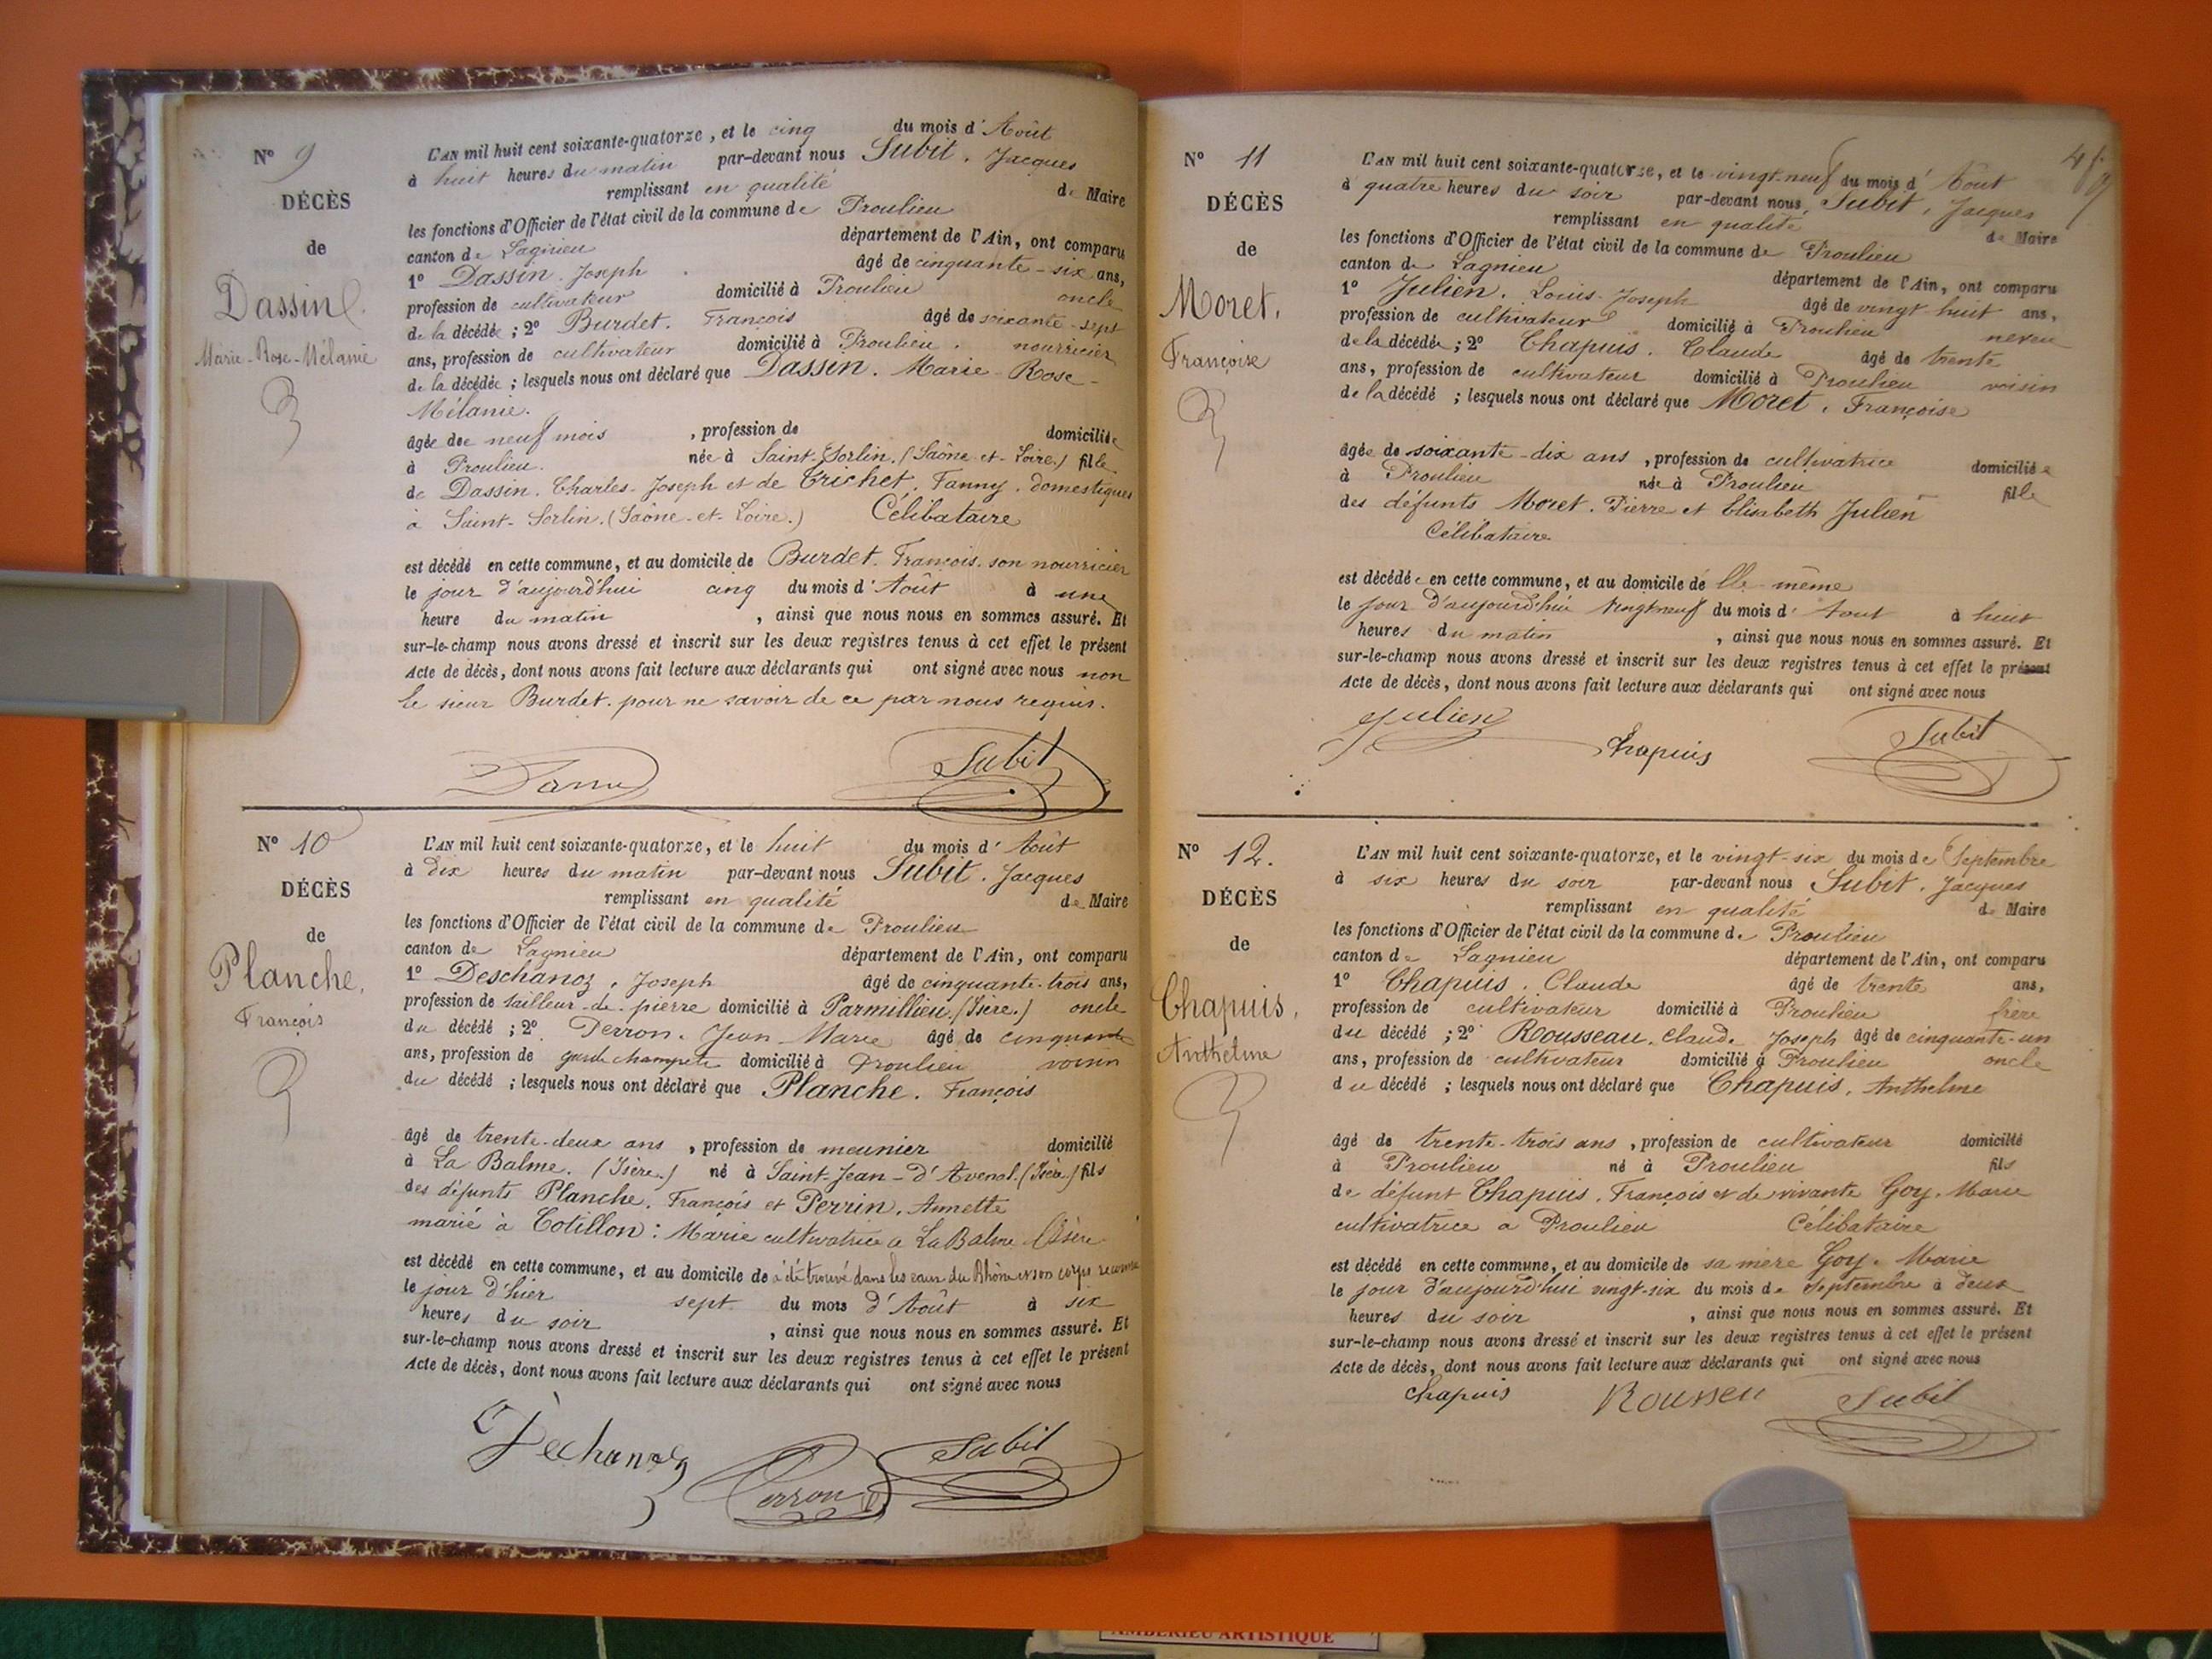 Nº 9
DÉCÈS
de
Dassin
Marie-Rose-Mélanie
L'AN mil huit cent soixante-quatorze, et le cinq du mois d'Août
à huit heures du matin par-devant nous Subit, Jacques
remplissant en qualité de Maire
les fonctions d'Officier de l'état civil de la commune de Proulieu
canton de Lagnieu département de l'Ain, ont comparu
1º Dassin. Joseph âgé de cinquante-six ans,
profession de cultivateur domicilié à Proulieu oncle
de la décédée ; 2º Burdet. François âgé de soixante-sept
ans, profession de cultivateur domicilié à Proulieu. nourricier
de la décédée ; lesquels nous ont déclaré que Dassin. Marie-Rose-
Mélanie.
âgée de neuf mois , profession de domiciliée
à Proulieu. née à Saint-Sorlin. (Saône-et-Loire.) fille
de Dassin. Charles-Joseph et de Trichet, Fanny. domestiques
à Saint-Sorlin. (Saône-et-Loire.) Célibataire
est décédé en cette commune, et au domicile de Burdet. François. son nourricier
le jour d'aujourd'hui cinq du mois d'Août à une
heure du matin , ainsi que nous nous en sommes assuré. Et
sur-le-champ nous avons dressé et inscrit sur les deux registres tenus à cet effet le présent
Acte de décès, dont nous avons fait lecture aux déclarants qui ont signé avec nous non
le sieur Burdet. pour ne savoir de ce par nous requis.
Subit
Nº 10
DÉCÈS
de
Planche.
François
L'AN mil huit cent soixante-quatorze, et le huit du mois d'Août
à dix heures du matin par-devant nous Subit. Jacques
remplissant en qualité de Maire
les fonctions d'Officier de l'état civil de la commune de Proulieu
canton de Lagnieu département de l'Ain, ont comparu
1º Deschanoz, Joseph âgé de cinquante-trois ans,
profession de tailleur-de-pierre domicilié à Parmillieu. (Isère.) oncle
du décédé ; 2º Perron. Jean-Marie âgé de cinquante
ans, profession de garde champete domicilié à Proulieu voisin
du décédé ; lesquels nous ont déclaré que Planche. François
âgé de trente-deux ans , profession de meunier domicilié
à La Balme. (Isère.) né à Saint-Jean-d'Avenol. (Isère.) fils
des défunts Planche. François et Perrin. Annette
marié à Cotillon : Marie cultivatrice à La Balme Isère
est décédé en cette commune, et au domicile de a été trouvé dans les eaux du Rhône et son corps reconnu
le jour d'hier sept du mois d'Août à six
heures du soir , ainsi que nous nous en sommes assuré. Et
sur-le-champ nous avons dressé et inscrit sur les deux registres tenus à cet effet le présent
Acte de décès, dont nous avons fait lecture aux déclarants qui ont signé avec nous
Perron Subit
Nº 11
DÉCÈS
de
Moret.
Françoise
L'AN mil huit cent soixante-quatorze, et le vingt-neuf du mois d'Août
à quatre heures du soir par-devant nous, Subit, Jacques
remplissant en qualité de Maire
les fonctions d'Officier de l'état civil de la commune de Proulieu
canton de Lagnieu département de l'Ain, ont comparu
1º Julien. Louis-Joseph âgé de vingt-huit ans,
profession de cultivateur domicilié à Proulieu neveu
de la décédée ; 2º Chapuis. Claude âgé de trente
ans, profession de cultivateur domicilié à Proulieu voisin
de la décédé ; lesquels nous ont déclaré que Moret, Françoise
âgée de soixante-dix ans , profession de cultivatrice domiciliée
à Proulieu née à Proulieu fille
des défunts Moret. Pierre et Elisabeth Julien
Célibataire
est décédée en cette commune, et au domicile de elle-même
le jour d'aujourd'hui vingt neuf du mois d'Aout à huit
heures du matin , ainsi que nous nous en sommes assuré. Et
sur-le-champ nous avons dressé et inscrit sur les deux registres tenus à cet effet le présent
Acte de décès, dont nous avons fait lecture aux déclarants qui ont signé avec nous
Julien Chapuis Subit
Nº 12.
DÉCÈS
de
Chapuis.
Anthelme
L'AN mil huit cent soixante-quatorze, et le vingt-six du mois de Septembre
à six heures du soir par-devant nous Subit. Jacques
remplissant en qualité de Maire
les fonctions d'Officier de l'état civil de la commune de Proulieu
canton de Lagnieu département de l'Ain, ont comparu
1º Chapuis. Claude âgé de trente ans,
profession de cultivateur domicilié à Proulieu frère
du décédé ; 2º Rousseau. Claude Joseph âgé de cinquante-un
ans, profession de cultivateur domicilié à Proulieu oncle
du décédé ; lesquels nous ont déclaré que Chapuis. Anthelme
âgé de trente-trois ans , profession de cultivateur domicilié
à Proulieu né à Proulieu fils
de défunt Chapuis. François et de vivante Goy. Marie
cultivatrice a Proulieu Célibataire
est décédé en cette commune, et au domicile de sa mère Goy. Marie
le jour d'aujourd'hui vingt-six du mois de Septembre à deux
heures du soir , ainsi que nous nous en sommes assuré. Et
sur-le-champ nous avons dressé et inscrit sur les deux registres tenus à cet effet le présent
Acte de décès, dont nous avons fait lecture aux déclarants qui ont signé avec nous
Chapuis Rousseu Subit
AMBERIEU ARTISTIQUE